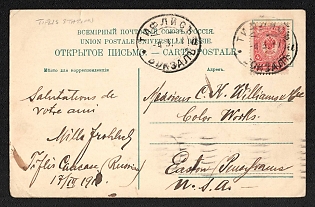 TIFLIS STATION
ВСЕМІРНЫЙ ПОЧТОВЫЙ СОЮЗЪ. РОССІЯ.
UNION POSTALE UNIVERSELLE. RUSSIE.
ОТКРЫТОЕ ПИСЬМО. — CARTE POSTALE.
Мѣсто для корреспонденціи
Адресъ.
ТИФЛИСЪ
ВОКЗАЛЪ
ТИФЛИСЪ
ВОКЗАЛЪ
Salutations de
votre ami
Tiflis Caucase (Russia)
Monsieur C. K. Williams &
Color Works.
Easton Pensylvania
U. S. A.